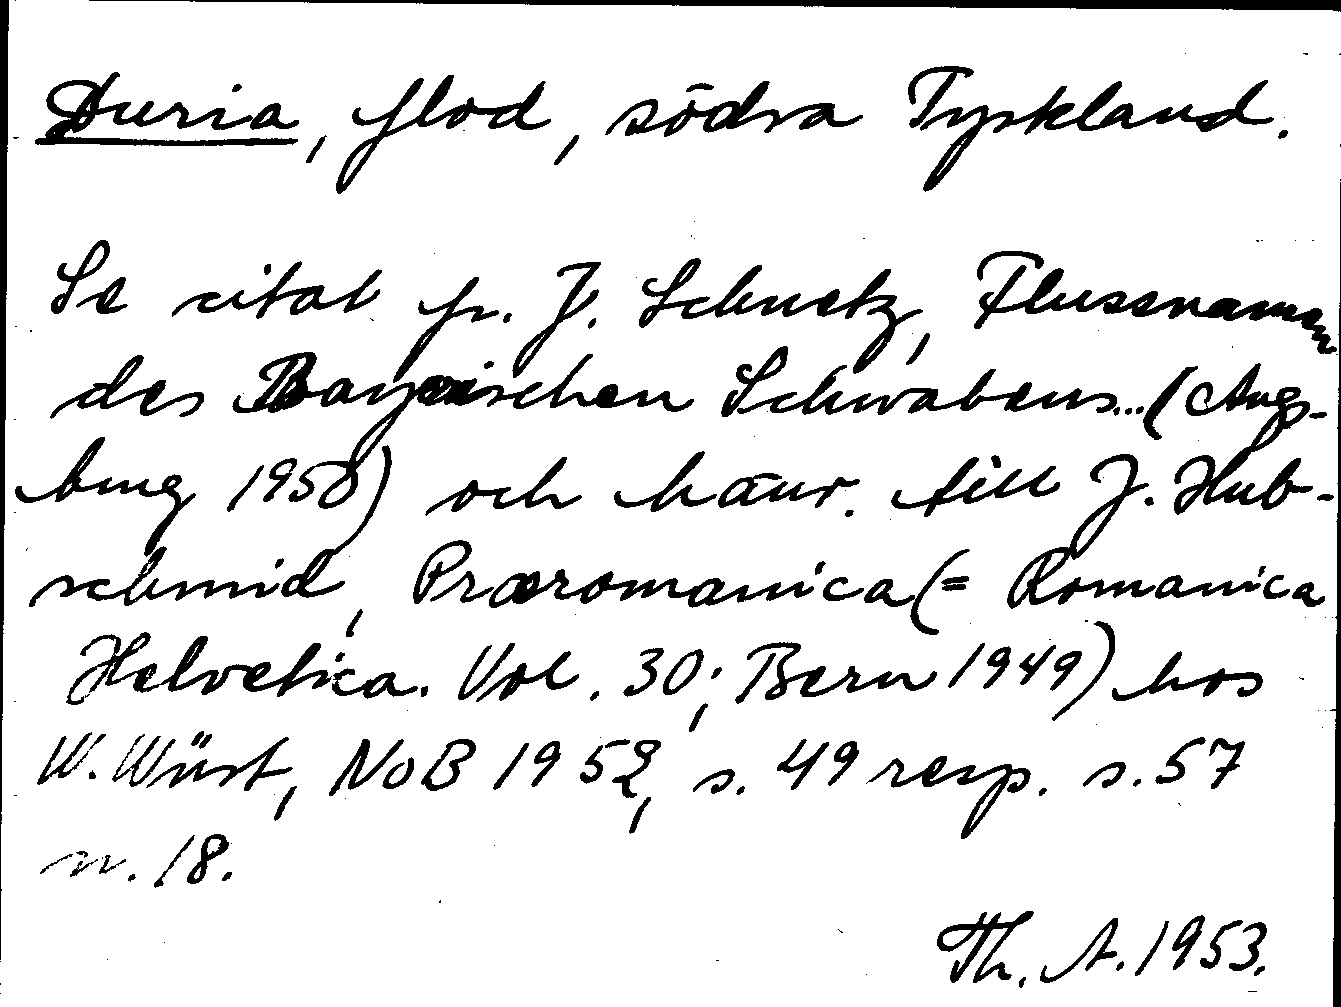 Duria, flod, södra Tyskland.
Se citat fr. J. Schnetz, Flussnamen
des Bayerischen Schwabens... (Augs-
burg 1950) och hänv. till J. Hub-
schmid, Præromanica (= Romanica
Helvetica. Vol. 30; Bern 1949) hos
W. Wüst, NoB 1952, s. 49 resp. s. 57
n. 18.
Th. A. 1953.